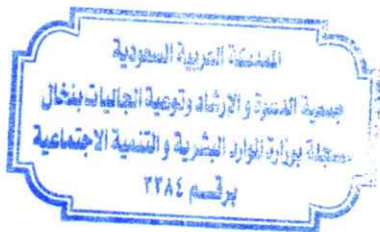 المملكة العربية السعودية
جمعية الدعوة والارشاد وتوعية الجاليات بنخال
مسجلة بوزارة الموارد البشرية والتنمية الاجتماعية
برقم ٣٣٨٤